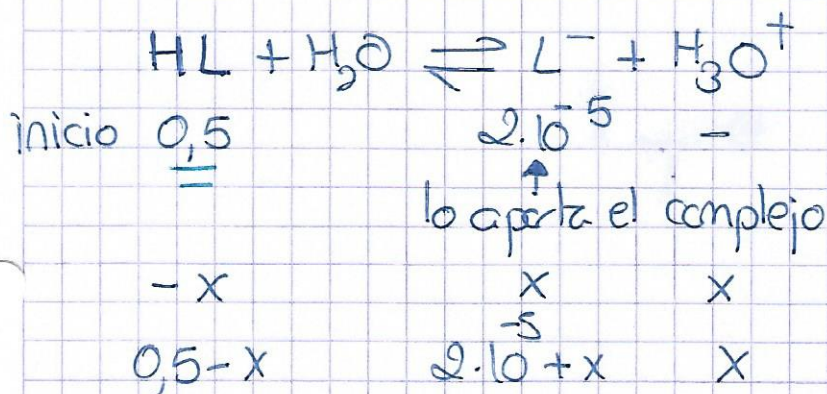 HL + H₂O ⇌ L⁻ + H₃O⁺
inicio 0,5 2·10⁻⁵ -
lo aporta el complejo
- x x x
0,5-x 2·10⁻⁵+x x